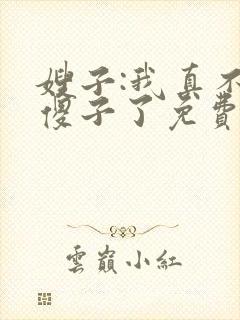 嫂子:我真不
傻子了免费
雲巔小紅